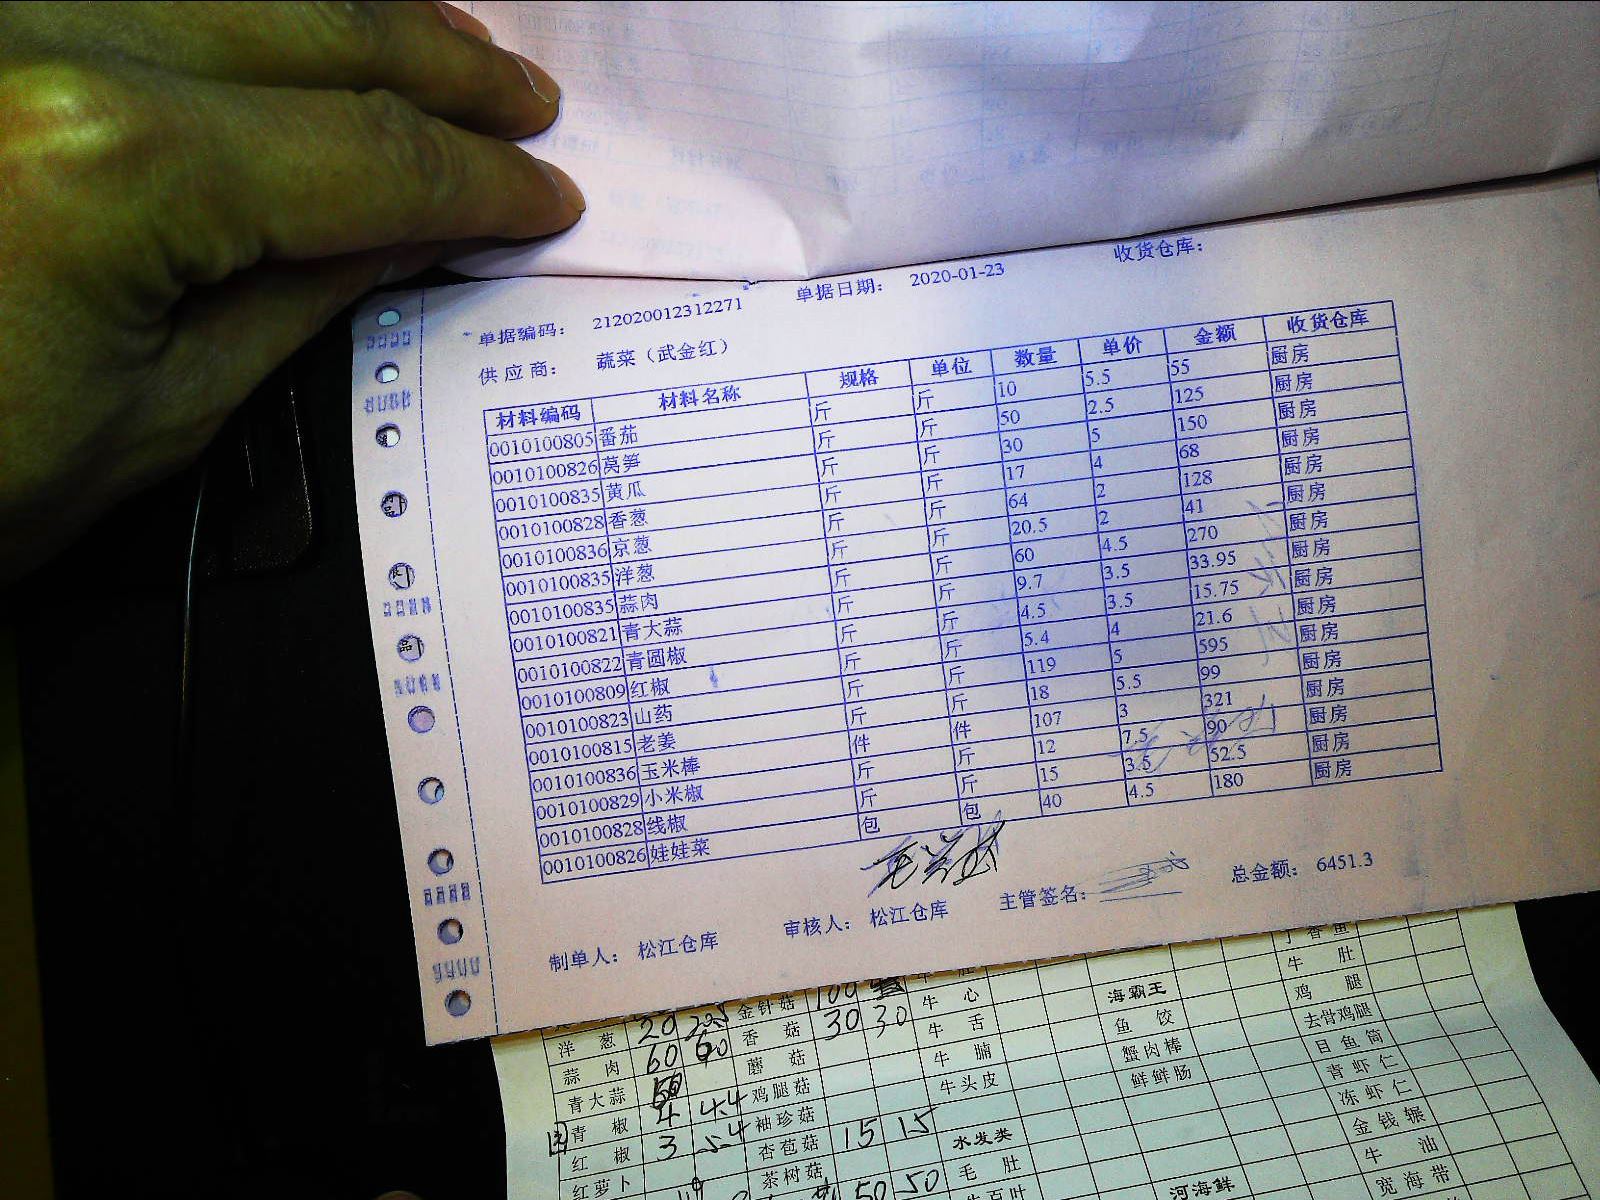 单据编码： 212020012312271 单据日期： 2020-01-23 收货仓库：
供应商： 蔬菜（武金红）
材料编码 材料名称 规格 单位 数量 单价 金额 收货仓库
0010100805 番茄 斤 斤 10 5.5 55 厨房
0010100826 莴笋 斤 斤 50 2.5 125 厨房
0010100835 黄瓜 斤 斤 30 5 150 厨房
0010100828 香葱 斤 斤 17 4 68 厨房
0010100836 京葱 斤 斤 64 2 128 厨房
0010100835 洋葱 斤 斤 20.5 2 41 厨房
0010100835 蒜肉 斤 斤 60 4.5 270 厨房
0010100821 青大蒜 斤 斤 9.7 3.5 33.95 厨房
0010100822 青圆椒 斤 斤 4.5 3.5 15.75 厨房
0010100809 红椒 斤 斤 5.4 4 21.6 厨房
0010100823 山药 斤 斤 119 5 595 厨房
0010100815 老姜 斤 斤 18 5.5 99 厨房
0010100836 玉米棒 件 件 107 3 321 厨房
0010100829 小米椒 斤 斤 12 7.5 90 厨房
0010100828 线椒 斤 斤 15 3.5 52.5 厨房
0010100826 娃娃菜 包 包 40 4.5 180 厨房
制单人： 松江仓库 审核人： 松江仓库 主管签名： 总金额： 6451.3
洋葱 20 20.5 金针菇 100 牛心 海霸王 牛肚
蒜肉 60 60 香菇 30 30 牛舌 鱼饺 鸡腿
青大蒜 蘑菇 牛腩 蟹肉棒 去骨鸡腿
青椒 4 4.4 鸡腿菇 牛头皮 鲜鲜肠 目鱼筒
红椒 3 5.4 袖珍菇 青虾仁
红萝卜 杏苞菇 15 15 水发类 冻虾仁
茶树菇 毛肚 金钱辗
50 50 牛百叶 河海鲜 牛油
宽海带